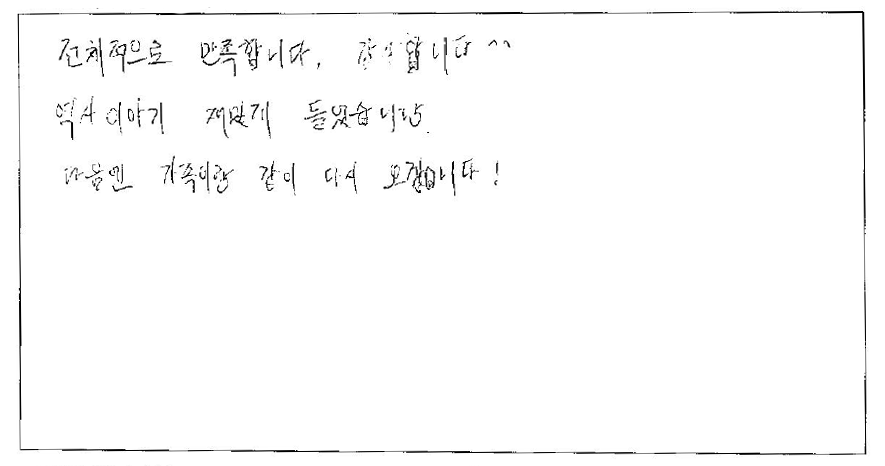 전체적으로 만족합니다, 감사합니다 ^^
역사이야기 재밌게 들었습니다.
다음엔 가족이랑 같이 다시 오겠습니다!